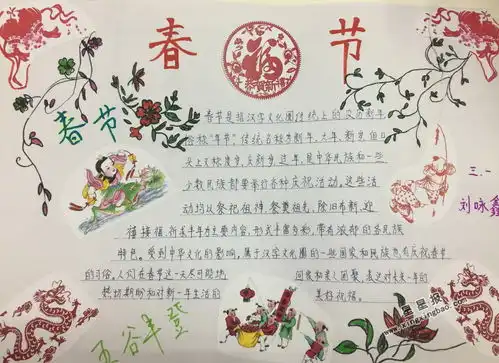 春 节
福
恭贺新禧
春节
春节是指汉字文化圈传统上的农历新年
俗称“年节”,传统名称为新年、大年、新岁,但口
头上又称度岁、庆新岁、过年,是中华民族和一些
少数民族都要举行各种庆祝活动。这些活
动均以祭祀祖神、祭奠祖先、除旧布新、迎
禧接福、祈求丰年为主要内容,形式丰富多彩,带有浓郁的各民族
特色。受到中华文化的影响,属于汉字文化圈的一些国家和民族也有庆祝春节
的习俗,人们在春节这一天尽可能地
回家和亲人团聚,表达对未来一年的
热切期盼和对新一年生活的
美好祝福。
三.一
刘咏鑫
五谷丰登
星星报
xingxingbao.com